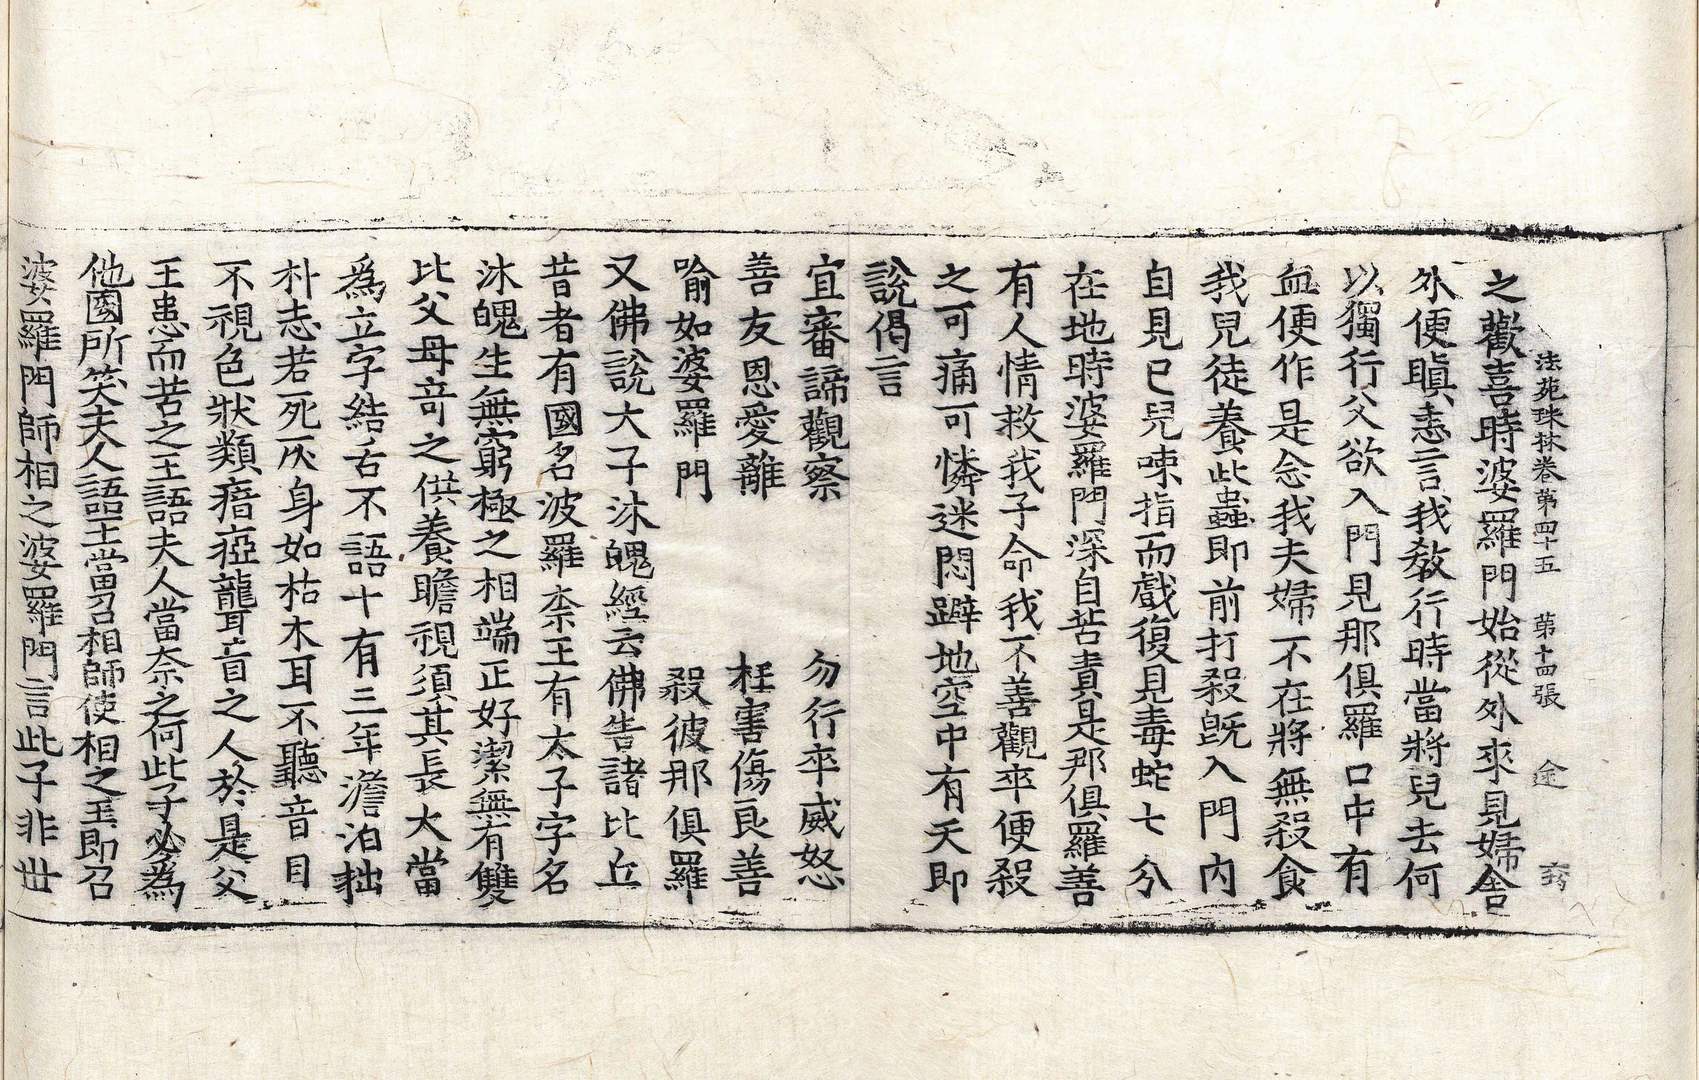 法苑珠林卷第四十五 第十四張 途
之歡喜時婆羅門始從外來見婦舍
外便瞋恚言我教行時當將兒去何
以獨行父欲入門見那俱羅口中有
血便作是念我夫婦不在將無殺食
我兒徒養此蟲即前打殺旣入門內
自見已兒㖨指而戲復見毒蛇七分
在地時婆羅門深自苦責是那俱羅善
有人情救我子命我不善觀卒便殺
之可痛可憐迷悶躃地空中有天即
說偈言
宜審諦觀察 勿行卒威怒
善友恩愛離 枉害傷良善
喻如婆羅門 殺彼那俱羅
又佛說大子沐魄經云佛告諸比丘
昔者有國名波羅柰王有太子字名
沐魄生無窮極之相端正好潔無有雙
比父母竒之供養瞻視須其長大當
為立字結舌不語十有三年澹泊拙
朴志若死灰身如枯木耳不聽音目
不視色狀類瘖瘂聾盲之人於是父
王患而苦之王語夫人當柰之何此子必為
他國所笑夫人語王當召相師使相之王即召
婆羅門師相之婆羅門言此子非世